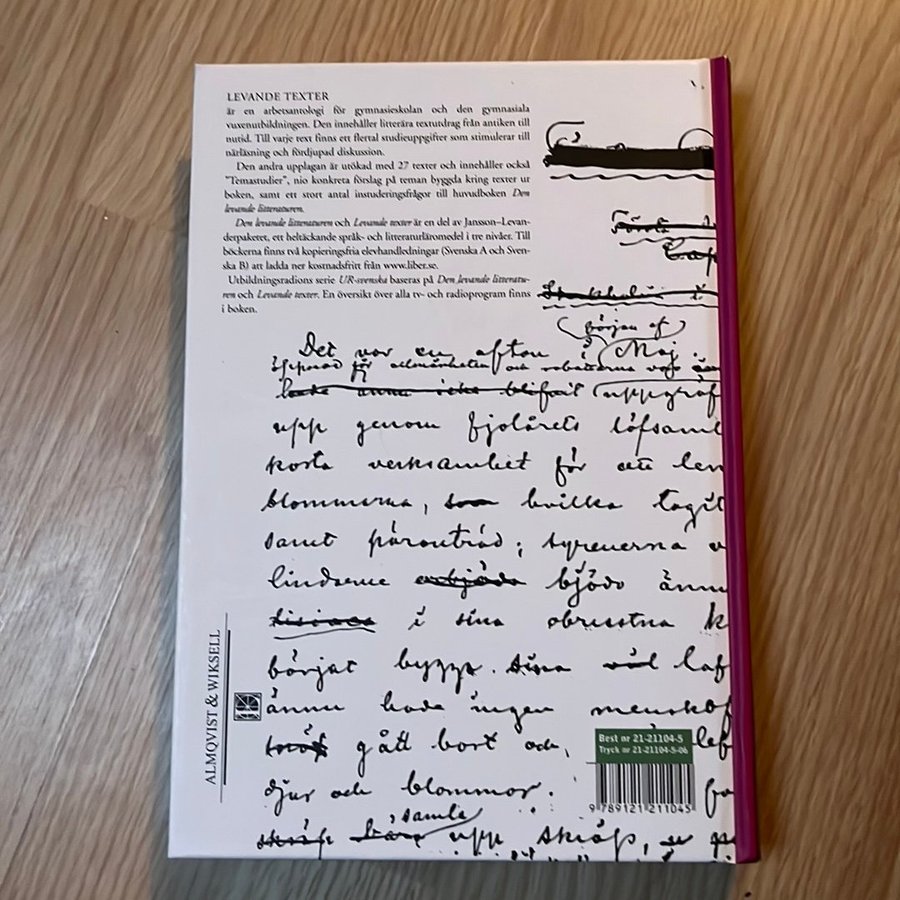 LEVANDE TEXTER
är en arbetsantologi för gymnasieskolan och den gymnasiala
vuxenutbildningen. Den innehåller litterära textutdrag från antiken till
nutid. Till varje text finns ett flertal studieuppgifter som stimulerar till
närläsning och fördjupad diskussion.
Den andra upplagan är utökad med 27 texter och innehåller också
"Temastudier", nio konkreta förslag på teman byggda kring texter ur
boken, samt ett stort antal instuderingsfrågor till huvudboken Den
levande litteraturen.
Den levande litteraturen och Levande texter är en del av Jansson–Levan-
derpaketet, ett heltäckande språk- och litteraturläromedel i tre nivåer. Till
böckerna finns två kopieringsfria elevhandledningar (Svenska A och Sven-
ska B) att ladda ner kostnadsfritt från www.liber.se.
Utbildningsradions serie UR-svenska baseras på Den levande litteratu-
ren och Levande texter. En översikt över alla tv- och radioprogram finns
i boken.
början af
Det var en afton i Maj.
öppnad för allmänheten och rabatterna voro
uppgräf
upp genom fjolårets löfsaml
korta verksamhet för att
blommorna, hvilka tagit
samt päronträd; syrenerna
lindarne bjödo ännu
i sina obrustna k
börjat bygga. löf
ännu hade ingen
gått bort och
djur och blommor.
samla
upp skräp,
ALMQVIST & WIKSELL
Best nr 21-21104-5
Tryck nr 21-21104-5-06
9 789121 211045